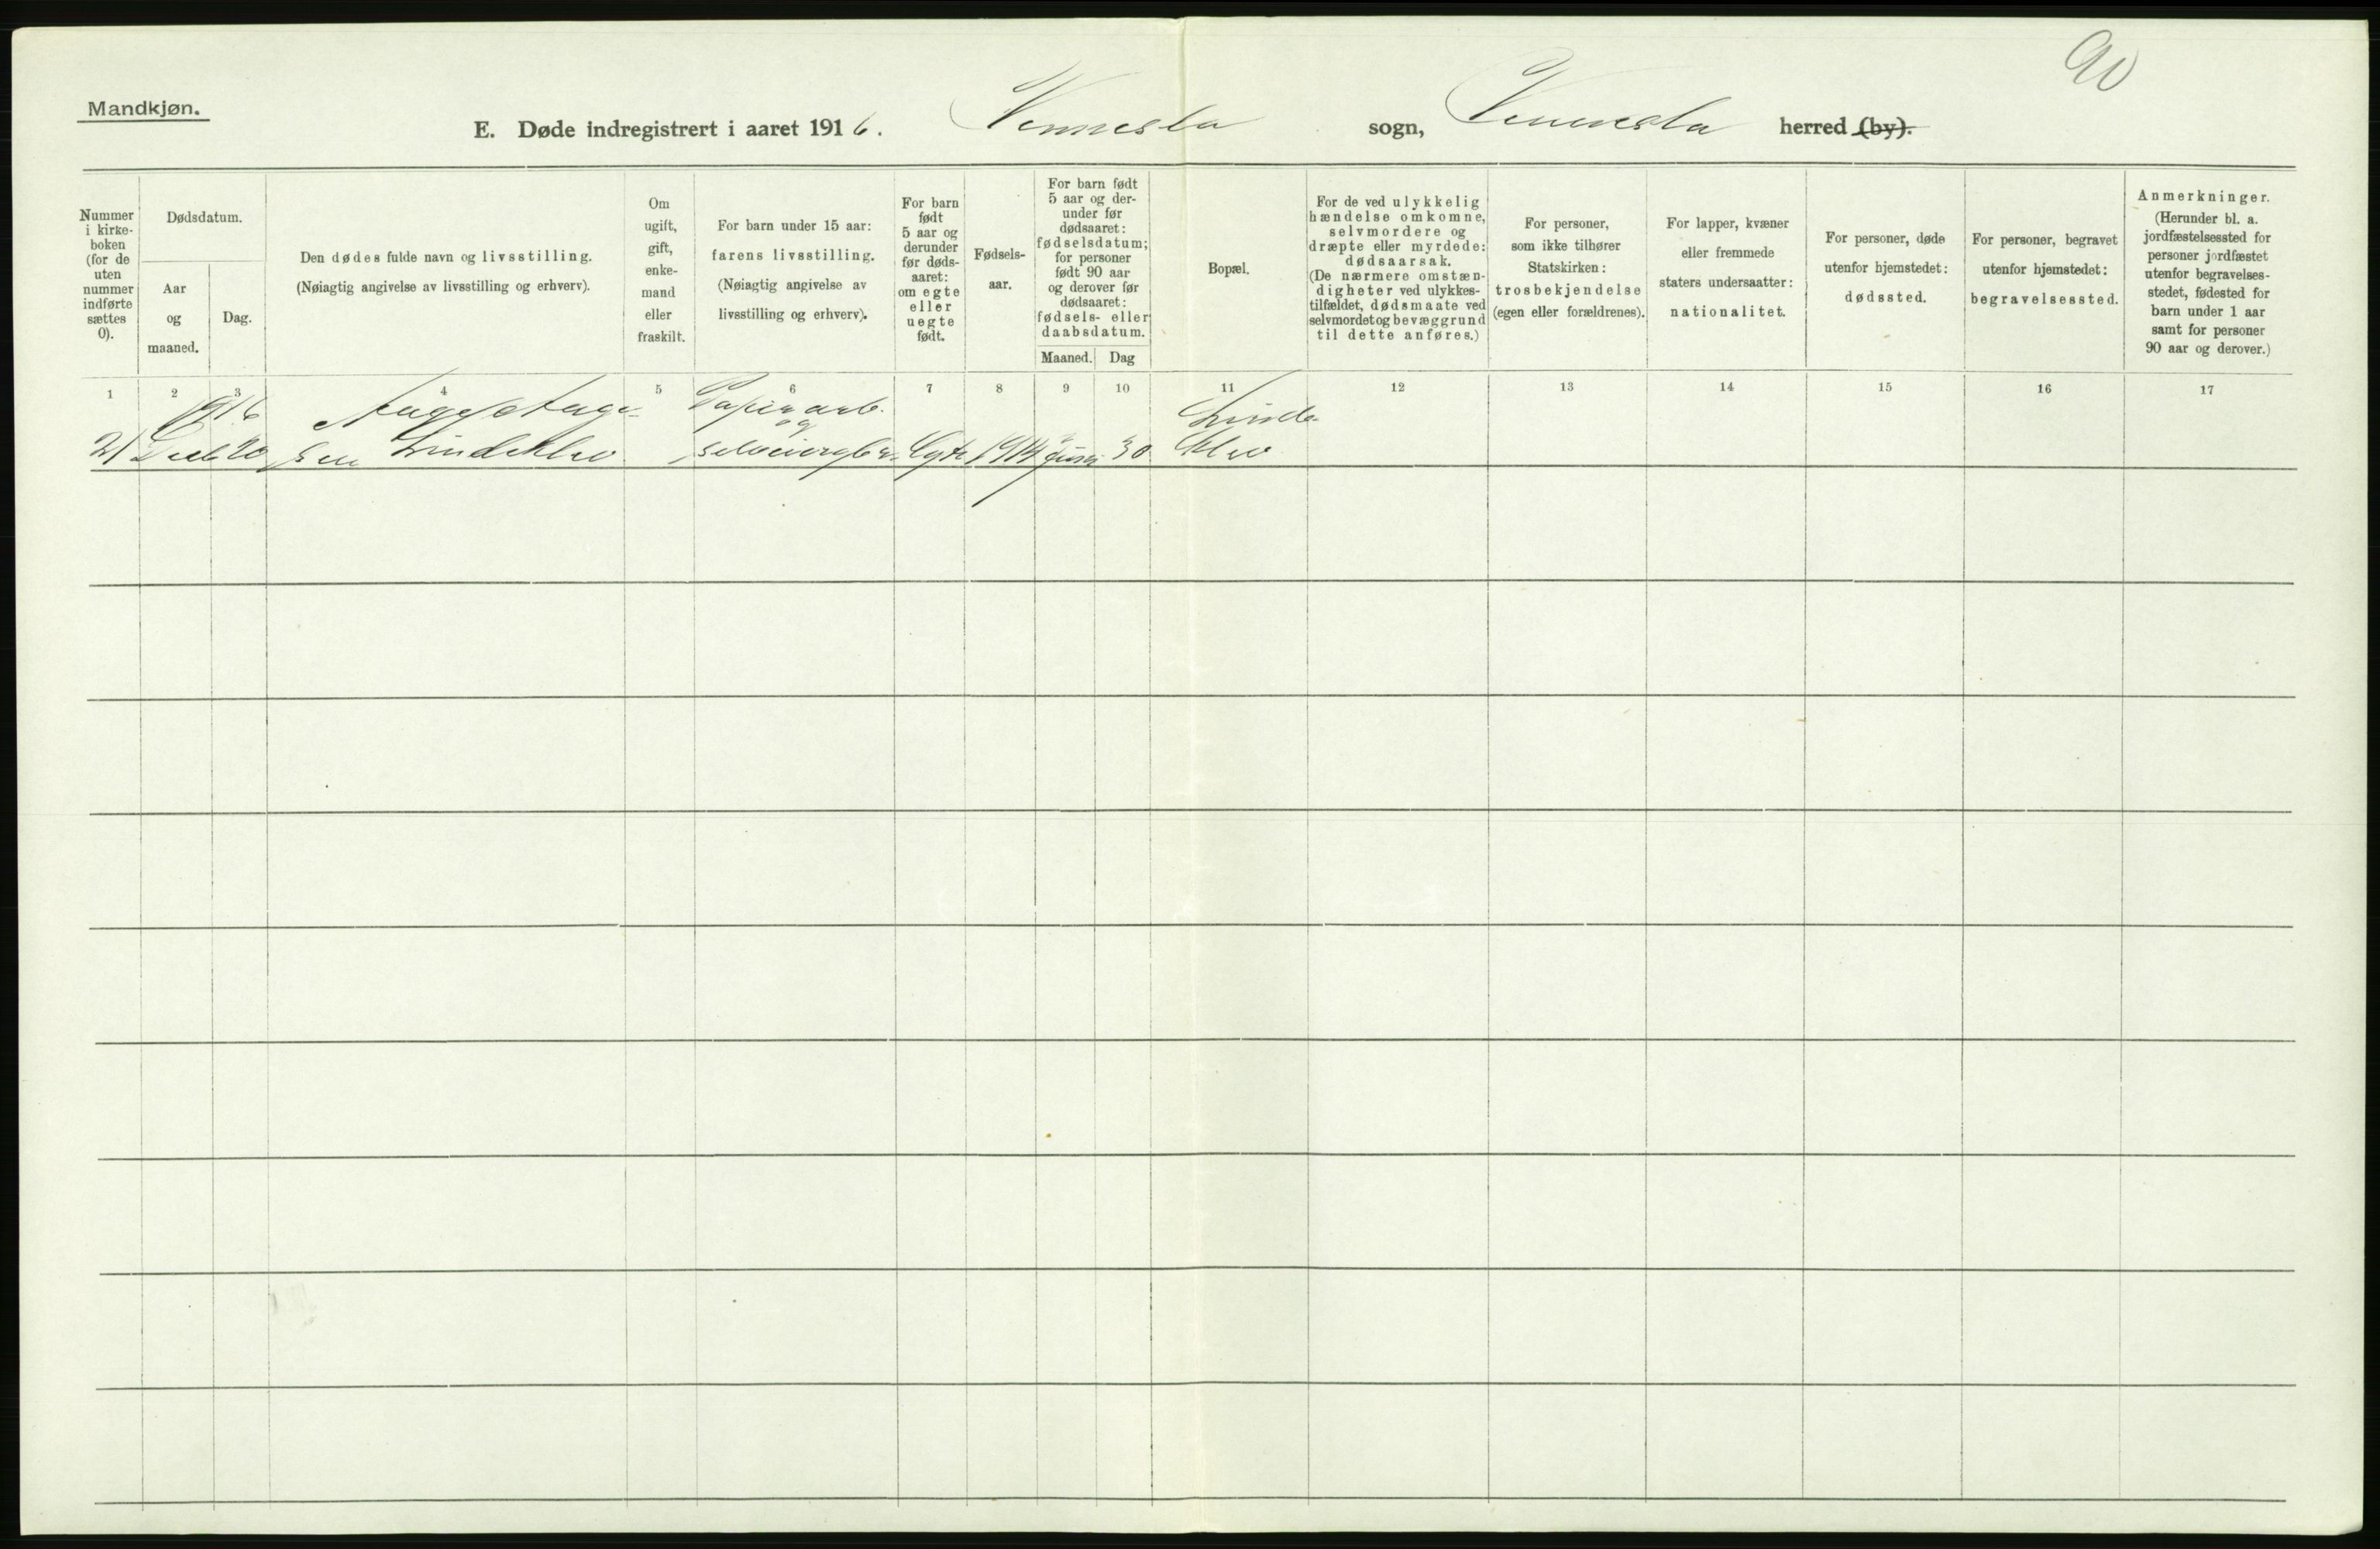 90
Mandkjøn.
E. Døde indregistrert i aaret 1916. Vennesla sogn, Vennesla herred (by).
Nummer
i kirke-
boken
(for de
uten
nummer
indførte
sættes
0).
Dødsdatum.
Aar
og
maaned.
Dag.
Den dødes fulde navn og livsstilling.
(Nøiagtig angivelse av livsstilling og erhverv).
Om
ugift,
gift,
enke-
mand
eller
fraskilt.
For barn under 15 aar:
farens livsstilling.
(Nøiagtig angivelse av
livsstilling og erhverv).
For barn
født
5 aar og
derunder
før døds-
aaret:
om egte
eller
uegte
født.
Fødsels-
aar.
For barn født
5 aar og der-
under før
dødsaaret:
fødselsdatum;
for personer
født 90 aar
og derover før
dødsaaret:
fødsels- eller
daabsdatum.
Maaned. Dag
Bopæl.
For de ved ulykkelig
hændelse omkomne,
selvmordere og
dræpte eller myrdede:
dødsaarsak.
(De nærmere omstæn-
digheter ved ulykkes-
tilfældet, dødsmaate ved
selvmordet og bevæggrund
til dette anføres.)
For personer,
som ikke tilhører
Statskirken:
trosbekjendelse
(egen eller forældrenes).
For lapper, kvæner
eller fremmede
staters undersaatter:
nationalitet.
For personer, døde
utenfor hjemstedet:
dødssted.
For personer, begravet
utenfor hjemstedet:
begravelsessted.
Anmerkninger.
(Herunder bl. a.
jordfæstelsessted for
personer jordfæstet
utenfor begravelses-
stedet, fødested for
barn under 1 aar
samt for personer
90 aar og derover.)
1 2 3 4 5 6 7 8 9 10 11 12 13 14 15 16 17
1916 Aage Aage- Papirarb. Linde-
og
21 Decb 20 sen Lindeklev selveiergbr. Egte 1914 Juni 30 klev